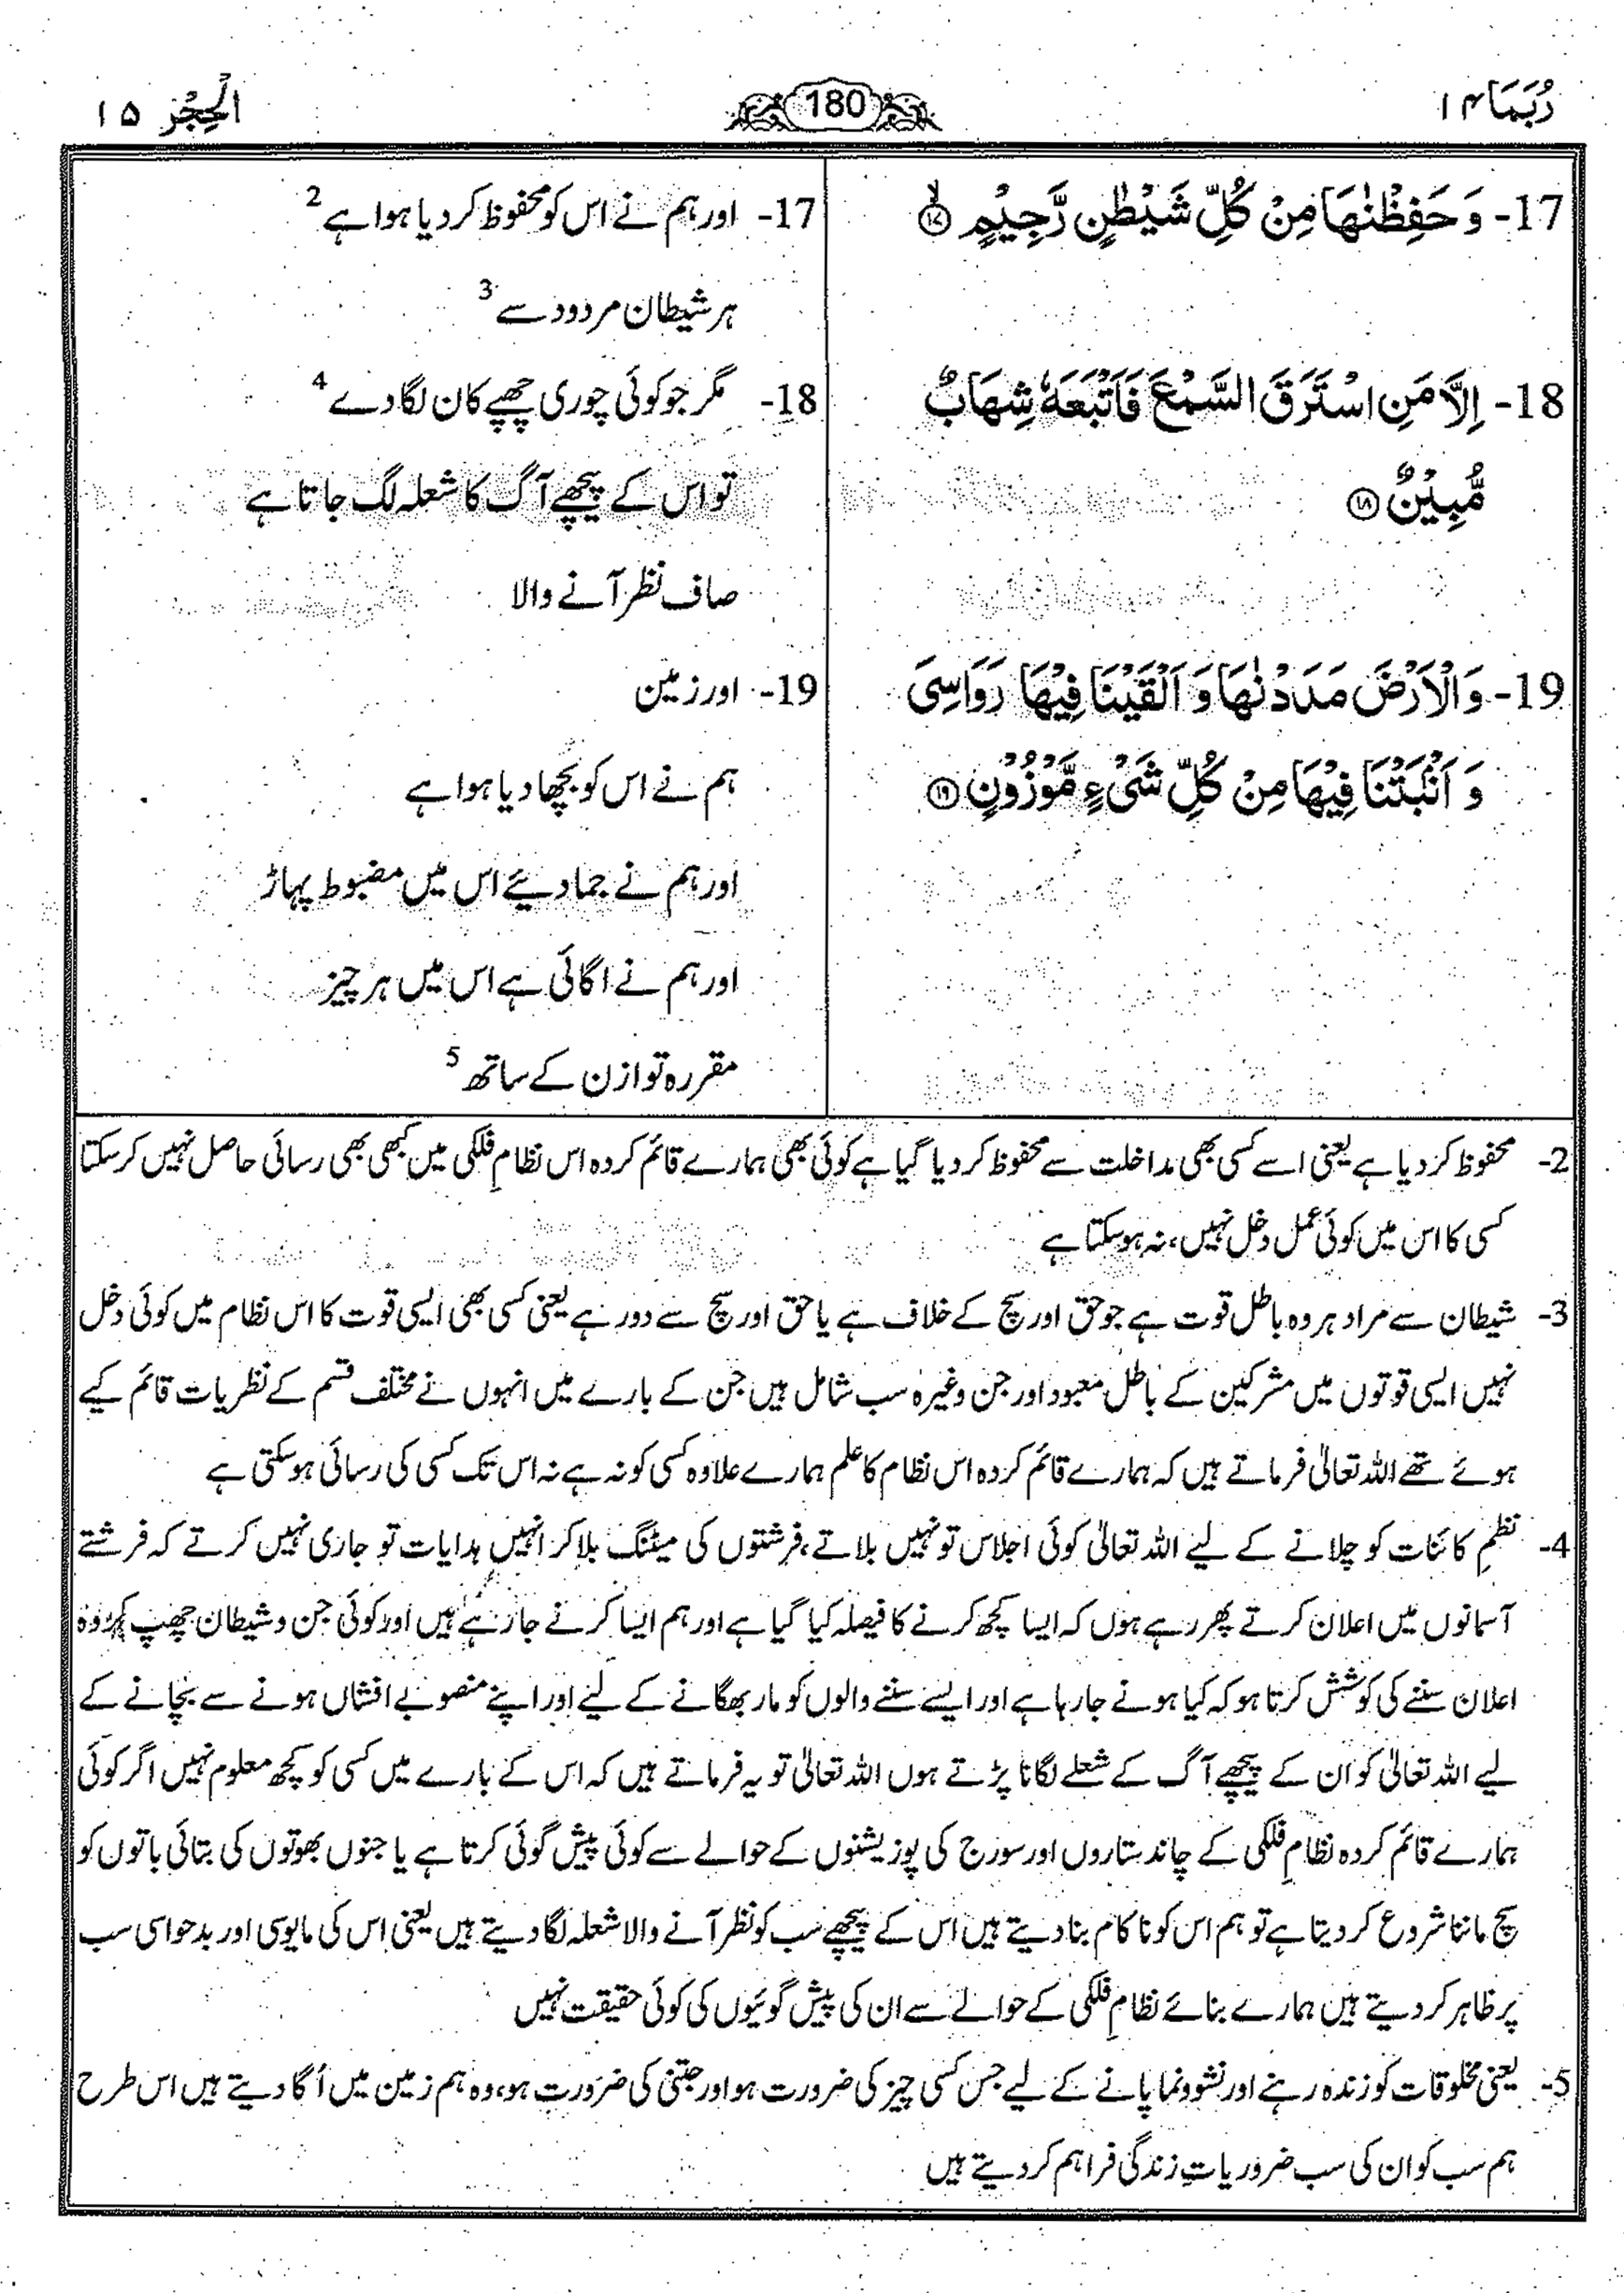 رُبَمَا ۱۴
180
الْحِجْر ۱۵
17- وَ حَفِظْنٰهَا مِنْ كُلِّ شَيْطٰنٍ رَّجِيْمٍ ۙ﴿۱۷﴾
18- اِلَّا مَنِ اسْتَرَقَ السَّمْعَ فَاَتْبَعَهٗ شِهَابٌ
مُّبِيْنٌ ﴿۱۸﴾
19- وَ الْاَرْضَ مَدَدْنٰهَا وَ اَلْقَيْنَا فِيْهَا رَوَاسِىَ
وَ اَنْۢبَتْنَا فِيْهَا مِنْ كُلِّ شَىْءٍ مَّوْزُوْنٍ ﴿۱۹﴾
17- اور ہم نے اس کو محفوظ کر دیا ہوا ہے 2
ہر شیطان مردود سے 3
18- مگر جو کوئی چوری چھپے کان لگا دے 4
تو اس کے پیچھے آگ کا شعلہ لگ جاتا ہے
صاف نظر آنے والا
19- اور زمین
ہم نے اس کو بچھا دیا ہوا ہے
اور ہم نے جما دیئے اس میں مضبوط پہاڑ
اور ہم نے اگائی ہے اس میں ہر چیز
مقررہ توازن کے ساتھ 5
2- محفوظ کر دیا ہے یعنی اسے کسی بھی مداخلت سے محفوظ کر دیا گیا ہے کوئی بھی ہمارے قائم کردہ اس نظامِ فلکی میں کبھی بھی رسائی حاصل نہیں کر سکتا
کسی کا اس میں کوئی عمل دخل نہیں، نہ ہو سکتا ہے
3- شیطان سے مراد ہر وہ باطل قوت ہے جو حق اور سچ کے خلاف ہے یا حق اور سچ سے دور ہے یعنی کسی بھی ایسی قوت کا اس نظام میں کوئی دخل
نہیں ایسی قوتوں میں مشرکین کے باطل معبود اور جن وغیرہ سب شامل ہیں جن کے بارے میں انہوں نے مختلف قسم کے نظریات قائم کیے
ہوئے تھے اللہ تعالیٰ فرماتے ہیں کہ ہمارے قائم کردہ اس نظام کا علم ہمارے علاوہ کسی کو نہ ہے نہ اس تک کسی کی رسائی ہو سکتی ہے
4- نظمِ کائنات کو چلانے کے لیے اللہ تعالیٰ کوئی اجلاس تو نہیں بلاتے، فرشتوں کی میٹنگ بلا کر انہیں ہدایات تو جاری نہیں کرتے کہ فرشتے
آسمانوں میں اعلان کرتے پھر رہے ہوں کہ ایسا کچھ کرنے کا فیصلہ کیا گیا ہے اور ہم ایسا کرنے جا رہے ہیں اور کوئی جن و شیطان چھپ کر وہ
اعلان سننے کی کوشش کرتا ہو کہ کیا ہونے جا رہا ہے اور ایسے سننے والوں کو مار بھگانے کے لیے اور اپنے منصوبے افشاں ہونے سے بچانے کے
لیے اللہ تعالیٰ کو ان کے پیچھے آگ کے شعلے لگانا پڑتے ہوں اللہ تعالیٰ تو یہ فرماتے ہیں کہ اس کے بارے میں کسی کو کچھ معلوم نہیں اگر کوئی
ہمارے قائم کردہ نظامِ فلکی کے چاند ستاروں اور سورج کی پوزیشنوں کے حوالے سے کوئی پیش گوئی کرتا ہے یا جنوں بھوتوں کی بتائی باتوں کو
سچ ماننا شروع کر دیتا ہے تو ہم اس کو ناکام بنا دیتے ہیں اس کے پیچھے سب کو نظر آنے والا شعلہ لگا دیتے ہیں یعنی اس کی مایوسی اور بدحواسی سب
پر ظاہر کر دیتے ہیں ہمارے بنائے نظامِ فلکی کے حوالے سے ان کی پیش گوئیوں کی کوئی حقیقت نہیں
5- یعنی مخلوقات کو زندہ رہنے اور نشوونما پانے کے لیے جس کسی چیز کی ضرورت ہو اور جتنی کی ضرورت ہو، وہ ہم زمین میں اُگا دیتے ہیں اس طرح
ہم سب کو ان کی سب ضروریاتِ زندگی فراہم کر دیتے ہیں